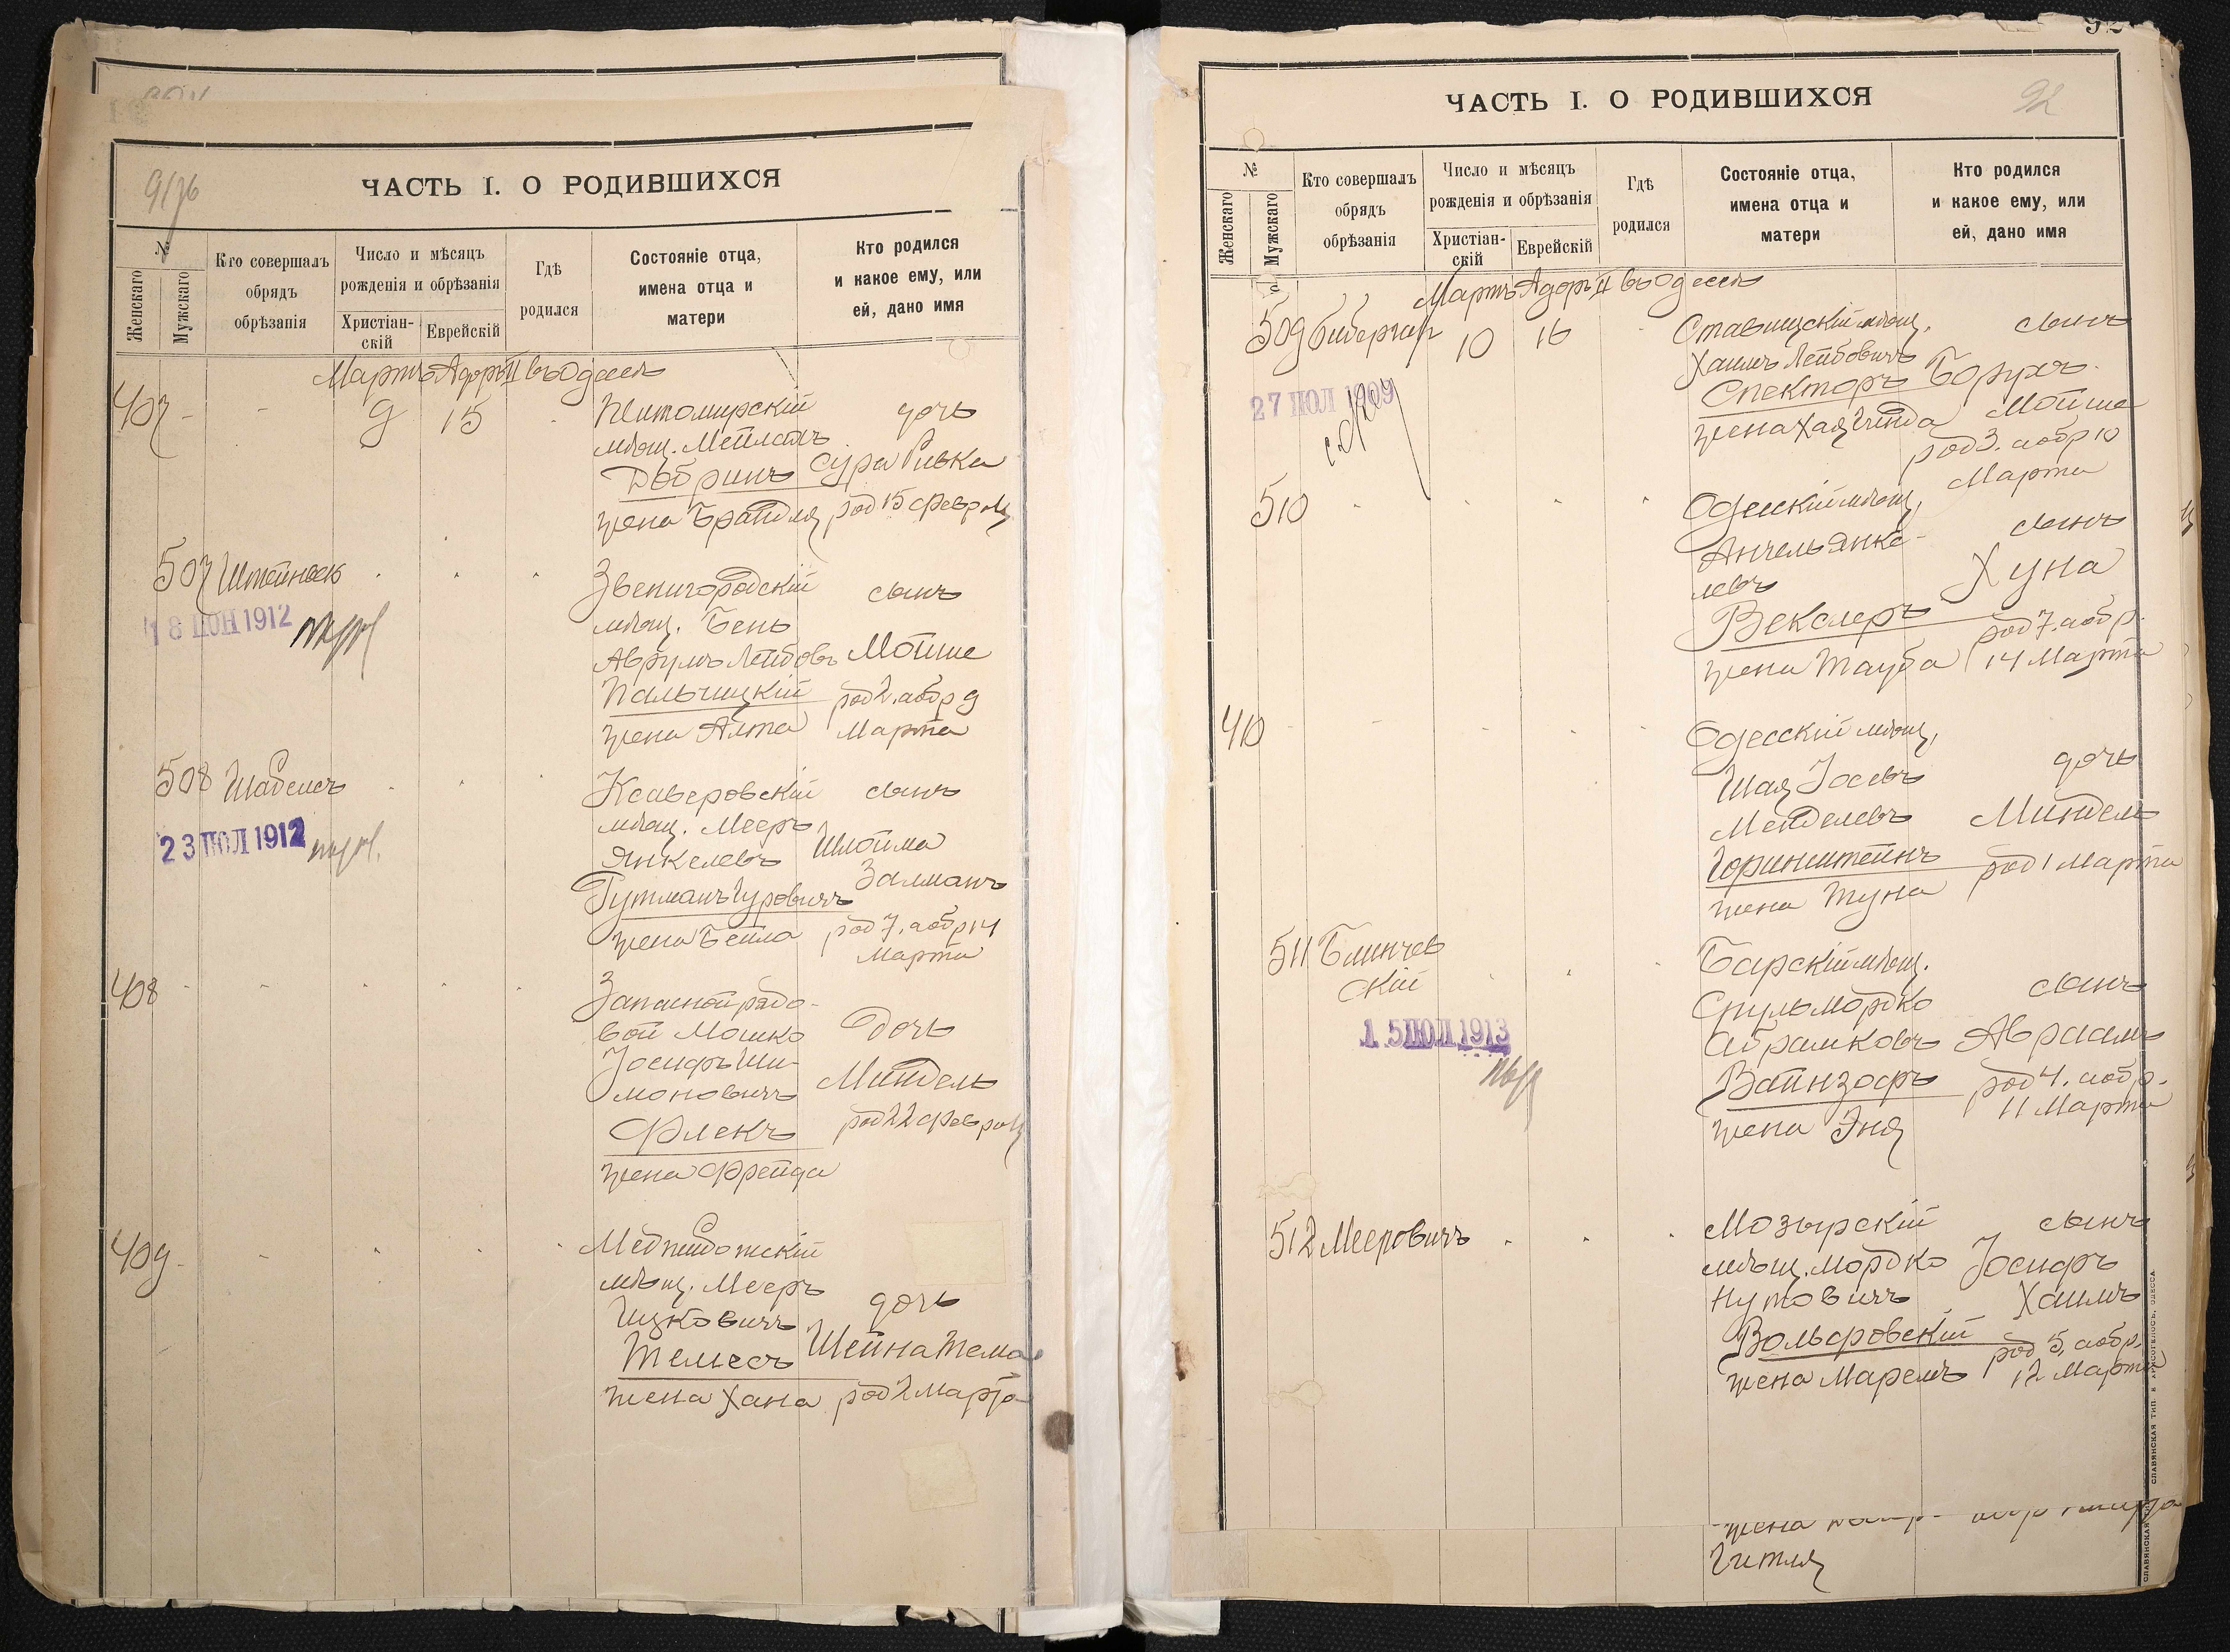 91/76
ЧАСТЬ I. О РОДИВШИХСЯ
№
Женскаго
Мужскаго
Кто совершалъ
обрядъ
обрѣзанія
Число и мѣсяцъ
рожденія и обрѣзанія
Христіан-
скій
Еврейскій
Гдѣ
родился
Состояніе отца,
имена отца и
матери
Кто родился
и какое ему, или
ей, дано имя
Мартъ Адоръ II въ Одессѣ
407 - - 9 15
Житомирскій
мѣщ. Мейлахъ
Добринъ
жена Брайдля
дочь
Сура Ривка
род 15 февраля
507 Штейнвек
18 ІЮН 1912
Звенигородскій
мѣщ. Бень
Аврумъ Лейбовъ
Пальчицкій
жена Алта
сынъ
Мойше
род 2. а обр 9
Марта
508 Шабсесъ
23 ІЮЛ 1912
Ксаверовскій
мѣщ. Мееръ
Янкелевъ
Гутманъ Гуровичъ
жена Бейла
сынъ
Шлойма
Залманъ
род 7. а обр 14
Марта
408
Запасной рядо-
вой Мошко
Іосифъ Ши-
моновичъ
Флекъ
жена Фрейда
Дочь
Миндель
род 22 февраля
409
Меджибожскій
мѣщ. Мееръ
Ицковичъ
Телисъ
жена Хана
дочь
Шейна Тема
род 2 Марта
92
ЧАСТЬ I. О РОДИВШИХСЯ
92
№
Женскаго
Мужскаго
Кто совершалъ
обрядъ
обрѣзанія
Число и мѣсяцъ
рожденія и обрѣзанія
Христіан-
скій
Еврейскій
Гдѣ
родился
Состояніе отца,
имена отца и
матери
Кто родился
и какое ему, или
ей, дано имя
Мартъ Адоръ II въ Одессѣ
509 Бибергал 10 16
27 ІЮЛ 1909
Ставищскій мѣщ.
Хаимъ Лейбовичъ
Спекторъ
жена Хая Гинда
сынъ
Борухъ
Мойше
род 3. а обр 10
Марта
510
Одесскій мѣщ.
Анчель Янке-
левъ
Векслеръ
жена Тауба
сынъ
Хуна
род 7. а обр.
14 Марта
410
Одесскій мѣщ.
Шая Іосевъ
Менделевъ
Горинштейнъ
жена Туна
дочь
Миндель
род 1 Марта
511 Блинчев
скій
15 ІЮЛ 1913
Барскій мѣщ.
Сруль Мордко
Абрамковъ
Вайнзофъ
жена Эня
сынъ
Авраамъ
род 4. а обр.
11 Марта
512 Мееровичъ
Мозырскій
мѣщ. Мордко
Нутовичъ
Вольфровскій
жена Маремъ
сынъ
Іосифъ
Хаимъ
род 5, а обр.
12 Марта
жена
Гитля
СЛАВЯНСКАЯ ТИП. Е. ХРИСОГЕЛОСЪ, ОДЕССА